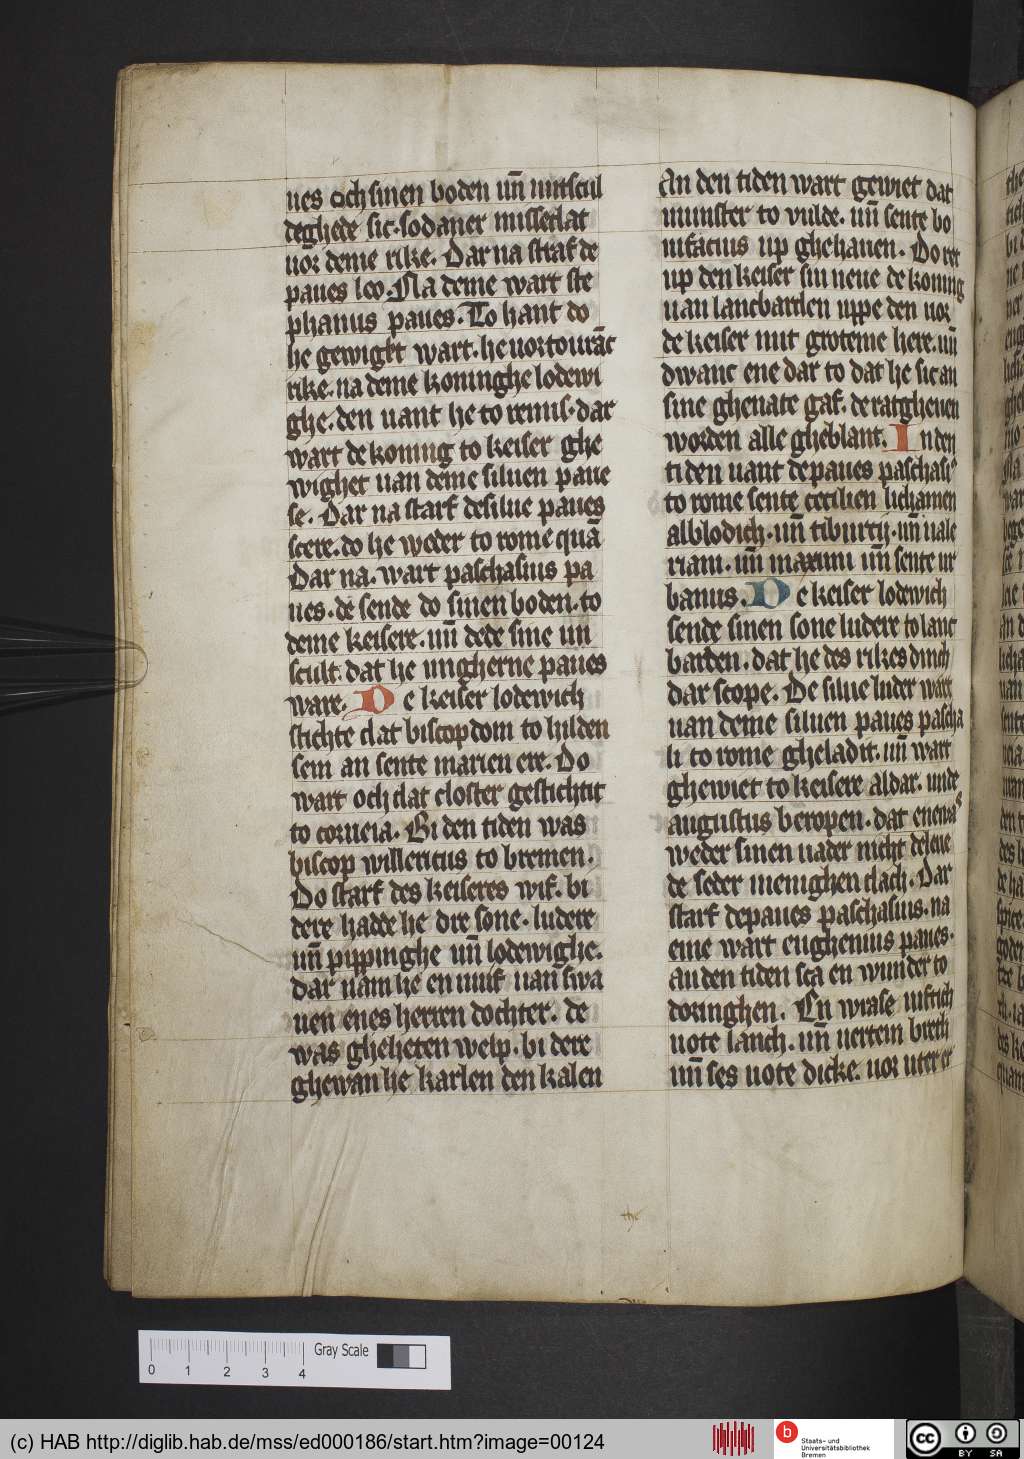 ues och sinen boden uñ untscul
deghede sic. sodaner missedat
uor deme rike. Dar na starf de
paues leo. Na deme wart ste
phanus paues. To hant do
he gewiget wart. he uor to urāc
rike. na deme koninghe lodewi
ghe. den uant he to remis. dar
wart de koning to keiser ghe
wighet uan deme siluen paue
se. Dar na starf desilue paues
scere. do he weder to rome quā
Dar na. wart paschasius pa
ues. de sende do sinen boden. to
deme keisere. uñ dede sine un
scult. dat he ungherne paues
ware. De keiser lodewich
stichte dat biscopdom to hilden
sem an sente marien ere. Do
wart och dat closter gestichtit
to corueia. Bi den tiden was
biscop willericus to bremen.
Do starf des keiseres wif. bi
dere hadde he dre sone. ludere
uñ pippinghe uñ lodewighe.
dar nam he en wif uan swa
uen enes herren dochter. de
was gheheten welp. bi dere
ghewan he karlen den kalen
An den tiden wart gewiet dat
munster to vulde. uñ sente bo
nifacius up ghehauen. Do ret
up den keiser sin neue de koning
uan lancbarden uppe den uor
de keiser mit groteme here. uñ
dwanc ene dar to dat he sic an
sine ghenate gaf. de ratgheuen
worden alle gheblant. In den
tiden uant de paues paschasi⁹
to rome sente cecilien lichamen
alblodich. uñ tiburtij. uñ uale
riani. uñ maximi uñ sente ur
banus. De keiser lodewich
sende sinen sone ludere to lanc
barden. dat he des rikes dinch
dar scope. De silue luder wart
uan deme siluen paues pascha
li to rome gheladit. uñ wart
ghewiet to keisere aldar. unde
augustus beropen. dat enewa⁹
weder sinen uader nicht deleue
de seder menighen dach. Dar
starf de paues paschasius. na
eme wart eughenius paues.
an den tiden sca en wunder to
doringhen. En wrase uiftich
uote lanch. uñ uertein breth
uñ ses uote dicke. uor uter er
the
0 1 2 3 4
Gray Scale
(c) HAB http://diglib.hab.de/mss/ed000186/start.htm?image=00124
b
Staats- und
Universitätsbibliothek
Bremen
cc
BY SA